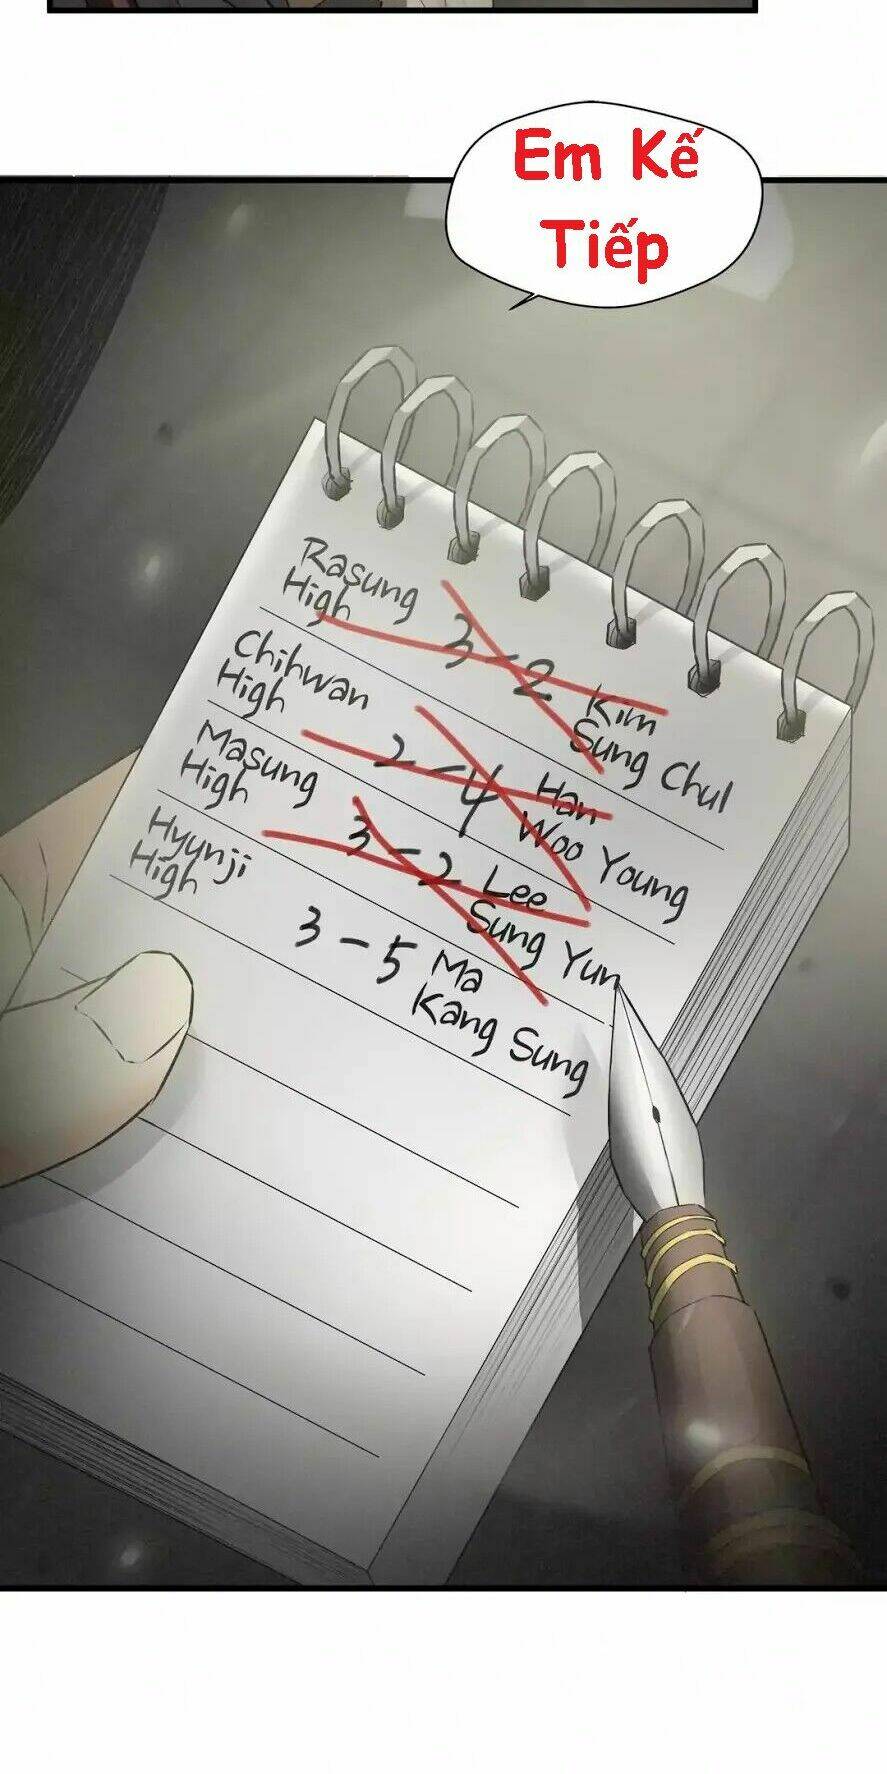 Em Kế
Tiếp
Rasung
High
3-2
Kim
Sung Chul
Chihwan
High
2-4
Han
Woo Young
Masung
High
3-2
Lee
Sung Yun
Hyunji
High
3-5
Ma
Kang Sung